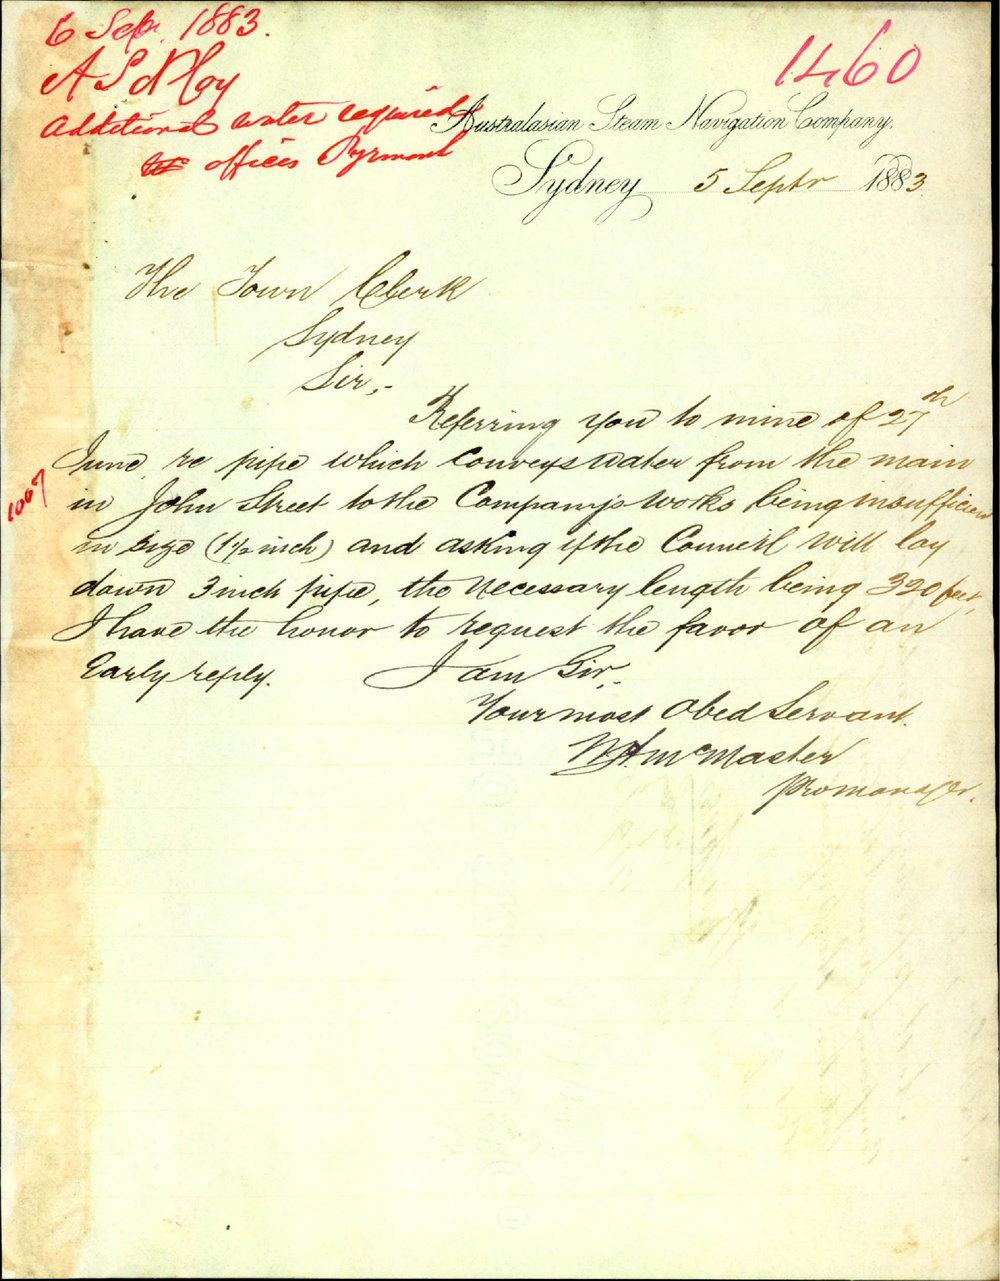 6 Sep. 1883.
A S N Coy
Additional water required
offices Pyrmont
1460
Australasian Steam Navigation Company.
Sydney 5 Septr 1883
The Town Clerk
Sydney
Sir,-
Referring you to mine of 27th
June, re pipe which conveys water from the main
1067
in John Street to the Company's works being insufficient
in size (1½ inch) and asking if the Council will lay
down 3 inch pipe, the necessary length being 320 feet,
I have the honor to request the favor of an
Early reply. I am Sir,
Your most Obed Servant.
McMaster
pro manager.